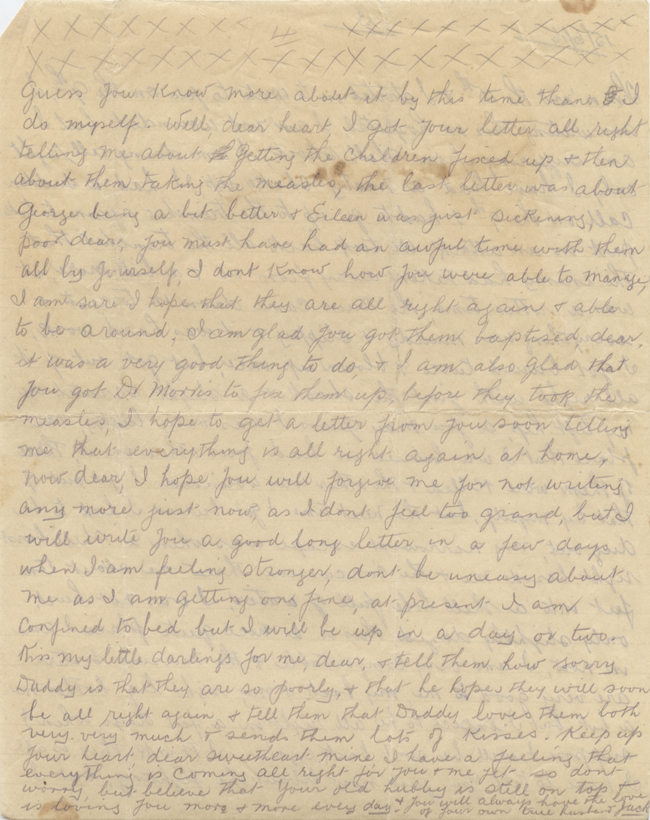 x x x x x x x x x x x 4 x x x x x x x x x x x x
x x x x x x x x x x x x x x x x x x x x x x x x
Guess you know more about it by this time than I
do myself. Well dear heart, I got your letter all right
telling me about getting the children fixed up & then
about them taking the measles, the last letter was about
George being a bit better & Eileen was just sickening,
poor dear, you must have had an awful time with them
all by yourself, I dont know how you were able to manage,
I am sure I hope that they are all right again & able
to be around. I am glad you got them baptised, dear,
it was a very good thing to do, & I am also glad that
you got Dr Morris to fix them up before they took the
measles, I hope to get a letter from you soon telling
me that everything is all right again at home,
now dear, I hope you will forgive me for not writing
any more just now, as I dont feel too grand, but I
will write you a good long letter in a few days
when I am feeling stronger, dont be uneasy about
me as I am getting on fine, at present I am
confined to bed but I will be up in a day or two.
Kiss my little darlings for me, dear, & tell them how sorry
Daddy is that they are so poorly, & that he hopes they will soon
be all right again, & tell them that Daddy loves them both
very very much & sends them lots of kisses. Keep up
your heart, dear sweetheart mine I have a feeling that
everything is coming all right for you & me yet so dont
worry, but believe that your old hubby is still on top &
is loving you more & more every day & you will always have the love
of your own true husband Jack